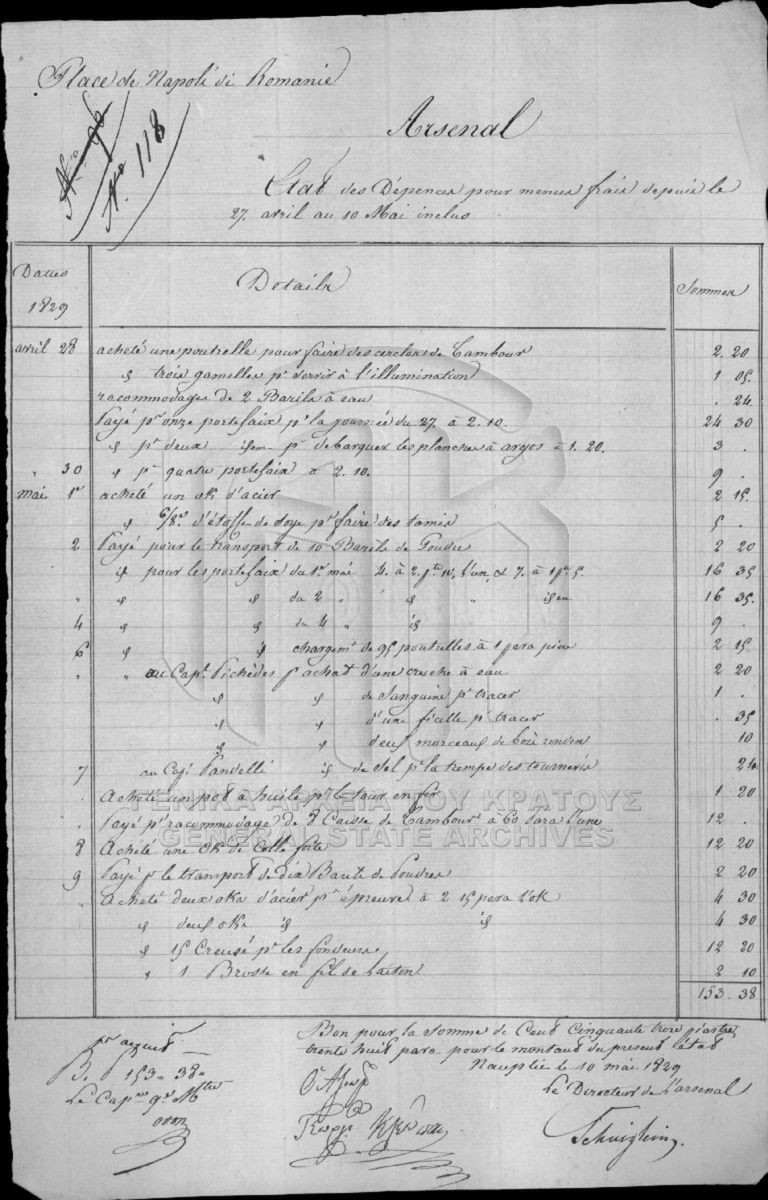 Place de Napoli di Romanie
No. 118
Arsenal
Etat des Dépences pour menus frais depuis le
27. avril au 10 Mai inclus
Dattes
1829
Details
Sommes
avril 28 acheté une poutrelle pour faire des cercles de Tambour 2. 20
id trois gamelles pr servir à l'illumination 1 05.
racommodages de 2 Barils à eau . 24.
Payé pr onze portefaix pr la journée du 27 à 2. 10. 24 30
id pr deux idem pr debarquer les planches à argos à 1. 20. 3 .
" 30 id pr quatre portefaix à 2. 10. 9 .
mai 1er acheté un ok d'acier 2 15.
id 6/8es d'étoffe de soye pr faire des tamis 5 .
2 Payé pour le transport de 10 Barils de Poudre 2 20
id pour les portefaix du 1er mai 4. à 2. 10, l'un, & 7. à 1 5. 16 35
" id id du 2 " id " idem 16 35.
4 id id du 4 " id 9 .
6 id id chargemt de 95 poutrelles à 1 para pièce 2 15
" " au Capt. Pichèdes pr achat d'une cruche à eau 2 20
id id de Sanguine pr tracer 1 .
id id d'une ficelle pr tracer . 35
id id deux morceaux de bois 10
7 au Capt Pandelli id de Sel pr la trempe des tourneris 24
. Acheté un pot à huile pr le tour en fer 1 20
. Payé pr racommodage de 8 Caisse de Tambour à 60 Para l'une 12 .
8 Acheté une ok de colle forte 12 20
9 Payé pr le transport de dix Barils de Poudres 2 20
" Acheté deux oks d'acier pr épreuve à 2 15 para l'ok 4 30
id deux oks id id 4 30
id 15 Creusé pr les fondeurs 12 20
id 1 Brosse en fil de Laiton 2 10
153 . 38
ΓΕΝΙΚΑ ΑΡΧΕΙΑ ΤΟΥ ΚΡΑΤΟΥΣ
GENERAL STATE ARCHIVES
pr acquit
B. 153 = 38 =
Le Capne gde Mtes
Bon pour la somme de Cent Cinquante trois piastres
trente huit para pour le montant du present état
Nauplie le 10 mai 1829
Le Directeur de l'arsenal